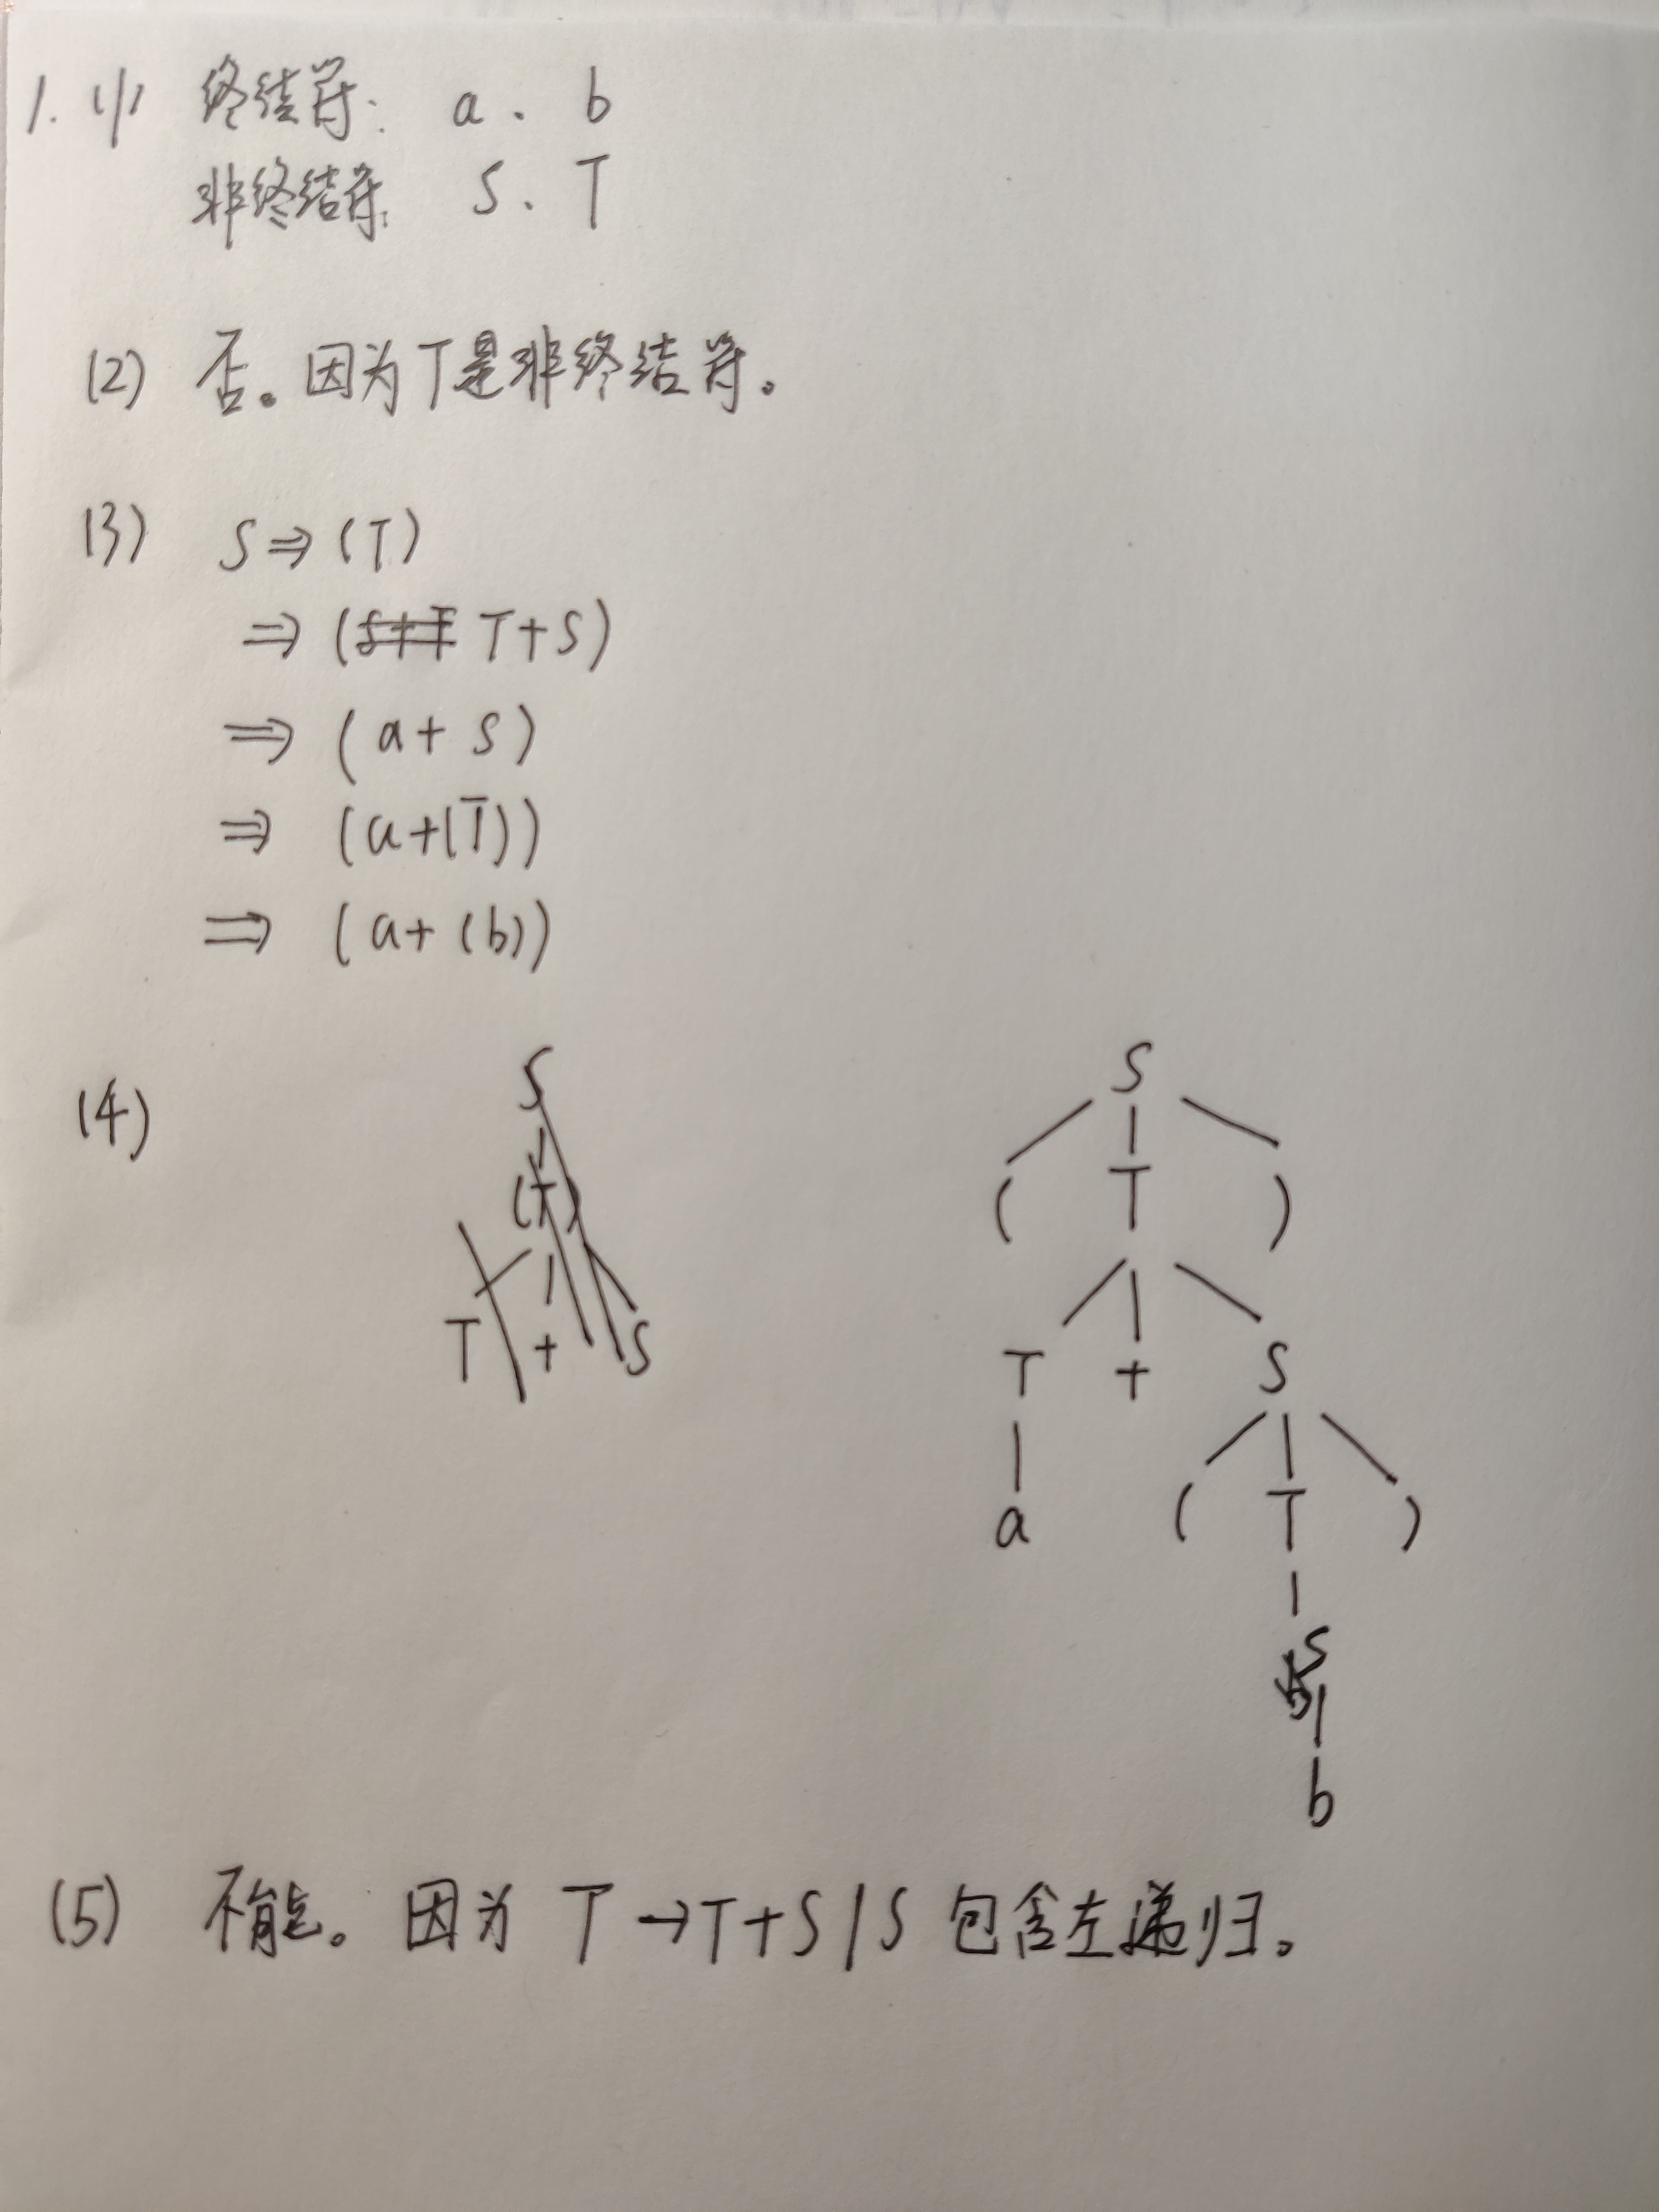 1. (1) 终结符: a、b
非终结符: S、T
(2) 否。因为T是非终结符。
(3) S⇒(T)
⇒(T+S)
⇒(a+S)
⇒(a+(T))
⇒(a+(b))
(4)
S
(T)
T + S
S
( T )
T + S
a ( T )
S
b
(5) 不能。因为 T→T+S|S 包含左递归。